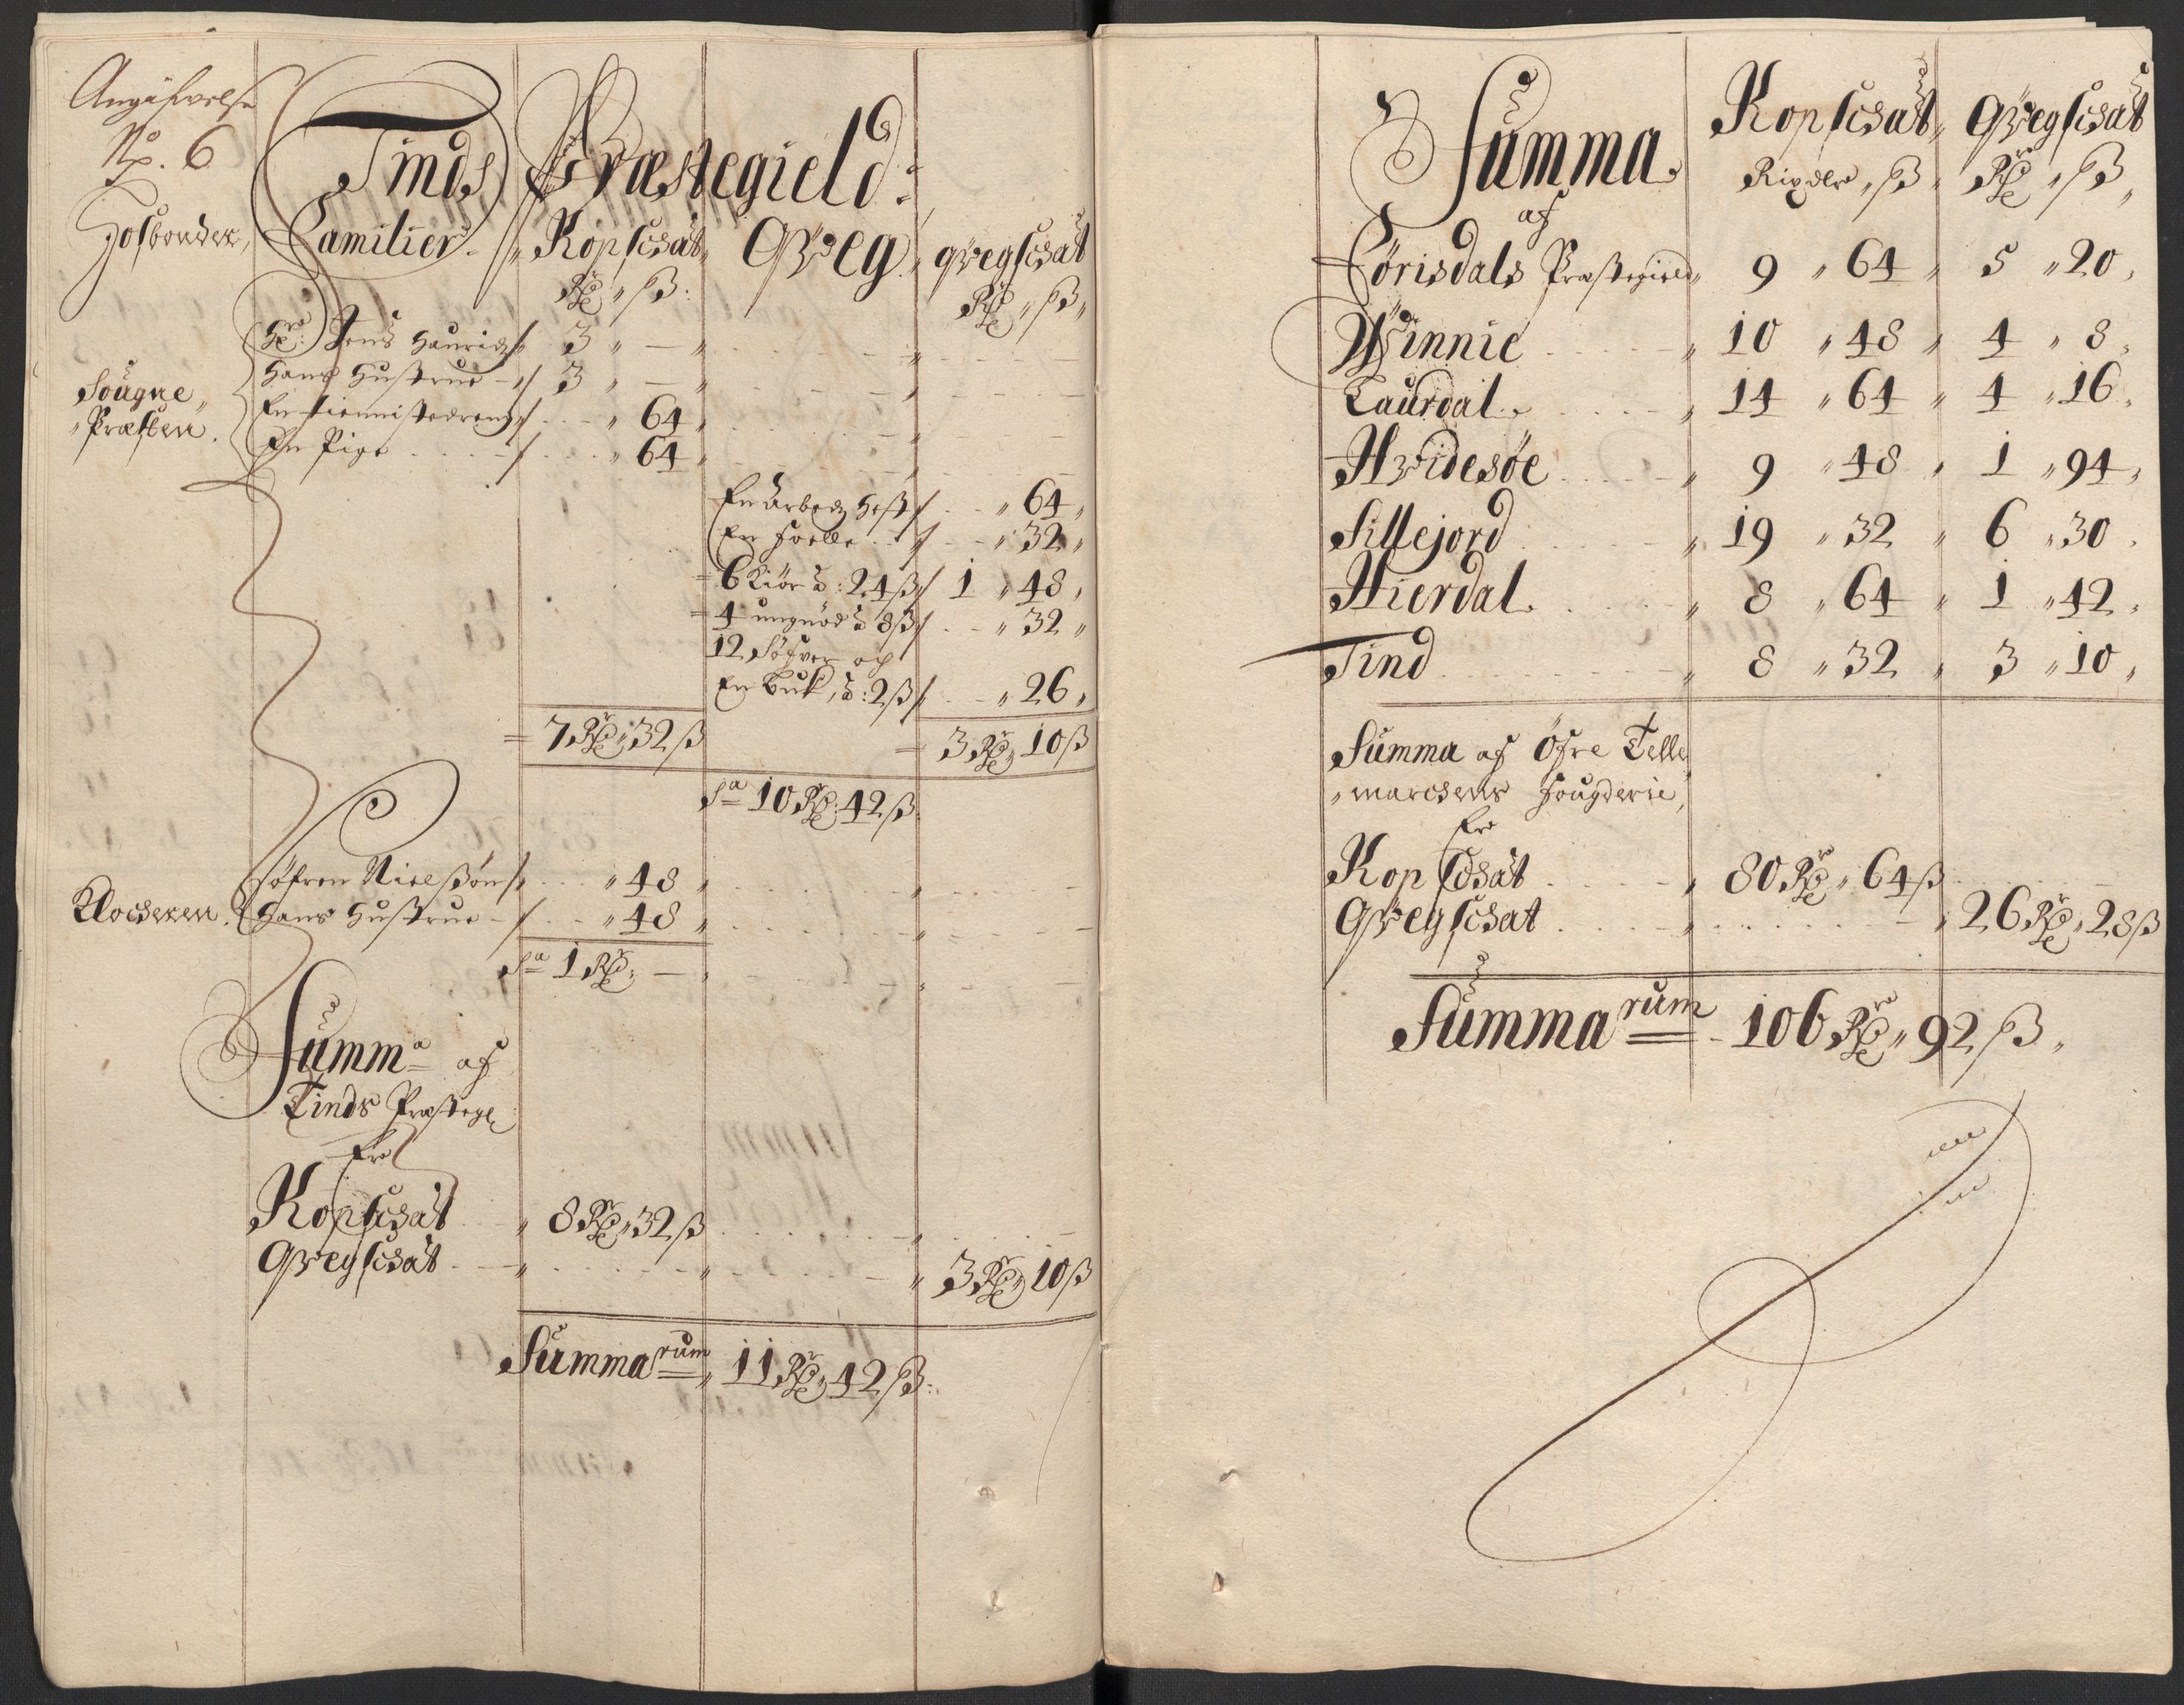 Angifvelse
No. 6
Tinds Præstegield:
Hosbonder, Familier. Kopschat, Qvæg, qvegschat
Rdr, ß: Rdr, ß,
Hr: Jens Hauridz 3 " —
Sougne Præsten. Hans Hustrue 3 " —
En tiennistedreng " 64
En Pige " 64
En Arbeds Hest " 64
En Foelle " 32
6 Kiør à: 24 ß 1 " 48
4 ungnød à 8 ß " 32
12 Søfver og
En Buk, à: 2 ß " 26
7 Rdr 32 ß 3 Rdr 10 ß
Sa 10 Rdr: 42 ß
Søfren Nielsøn " 48
Klocheren. Hans Hustrue " 48
Sa 1 Rdr, —
Summa af
Tinds Præstegl:
Er
Kopschat 8 Rdr, 32 ß
Qvegschat 3 Rdr, 10 ß
Summarum, 11 Rdr, 42 ß:
Summa. Kopschat, Qvegschat
af Rixdlr, ß, Rdr, ß,
Førisdals Præstegield 9 " 64 " 5 " 20
Winnie 10 " 48 " 4 " 8
Laurdal 14 " 64 " 4 " 16
Hvidesøe 9 " 48 " 1 " 94
Sillejord 19 " 32 " 6 " 30
Hierdal 8 " 64 " 1 " 42
Tind 8 " 32 " 3 " 10
Summa af Øfre Telle
marchens Fougderie,
Er
Kopschat 80 Rdr, 64 ß
Qvegschat 26 Rdr, 28 ß
Summarum 106 Rdr, 92 ß,